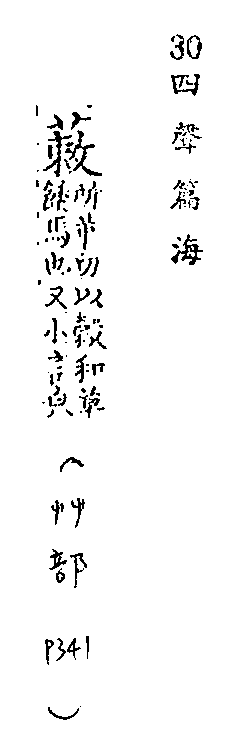 30四聲篇海
䔩所革切以穀和草
餧馬也又小言皃
(艸部 P341)